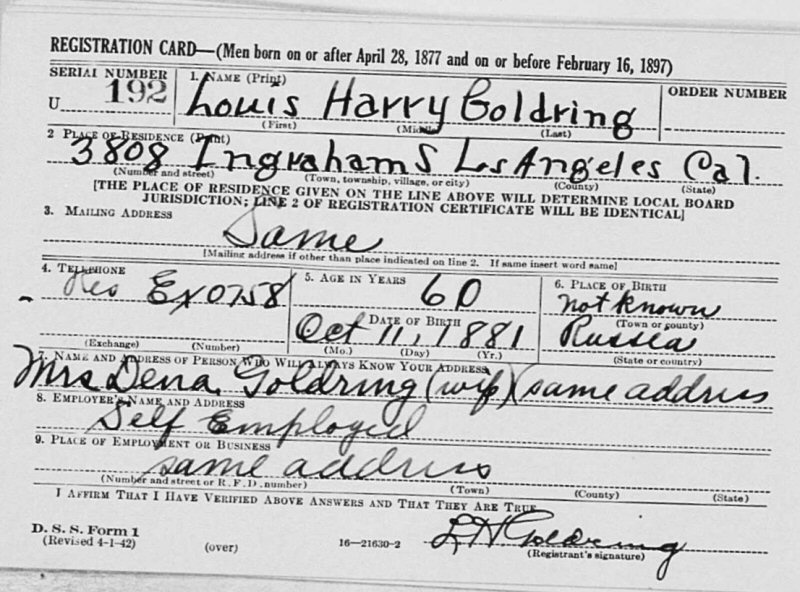 REGISTRATION CARD—(Men born on or after April 28, 1877 and on or before February 16, 1897)
SERIAL NUMBER 1. NAME (Print) ORDER NUMBER
U 192 Louis Harry Goldring
(First) (Middle) (Last)
2 PLACE OF RESIDENCE (Print)
3808 Ingraham S Los Angeles Cal.
(Number and street) (Town, township, village, or city) (County) (State)
[THE PLACE OF RESIDENCE GIVEN ON THE LINE ABOVE WILL DETERMINE LOCAL BOARD
JURISDICTION; LINE 2 OF REGISTRATION CERTIFICATE WILL BE IDENTICAL]
3. MAILING ADDRESS
Same
[Mailing address if other than place indicated on line 2. If same insert word same]
4. TELEPHONE 5. AGE IN YEARS 6. PLACE OF BIRTH
Res Ex 0758 60 not known
DATE OF BIRTH (Town or county)
Oct 11, 1881 Russia
(Exchange) (Number) (Mo.) (Day) (Yr.) (State or country)
7. NAME AND ADDRESS OF PERSON WHO WILL ALWAYS KNOW YOUR ADDRESS
Mrs Dena Goldring (wife) (same address
8. EMPLOYER'S NAME AND ADDRESS
Self Employed
9. PLACE OF EMPLOYMENT OR BUSINESS
same address
(Number and street or R. F. D. number) (Town) (County) (State)
I AFFIRM THAT I HAVE VERIFIED ABOVE ANSWERS AND THAT THEY ARE TRUE
D. S. S. Form 1
(Revised 4-1-42) (over) 16—21630-2 L H Goldring
(Registrant's signature)